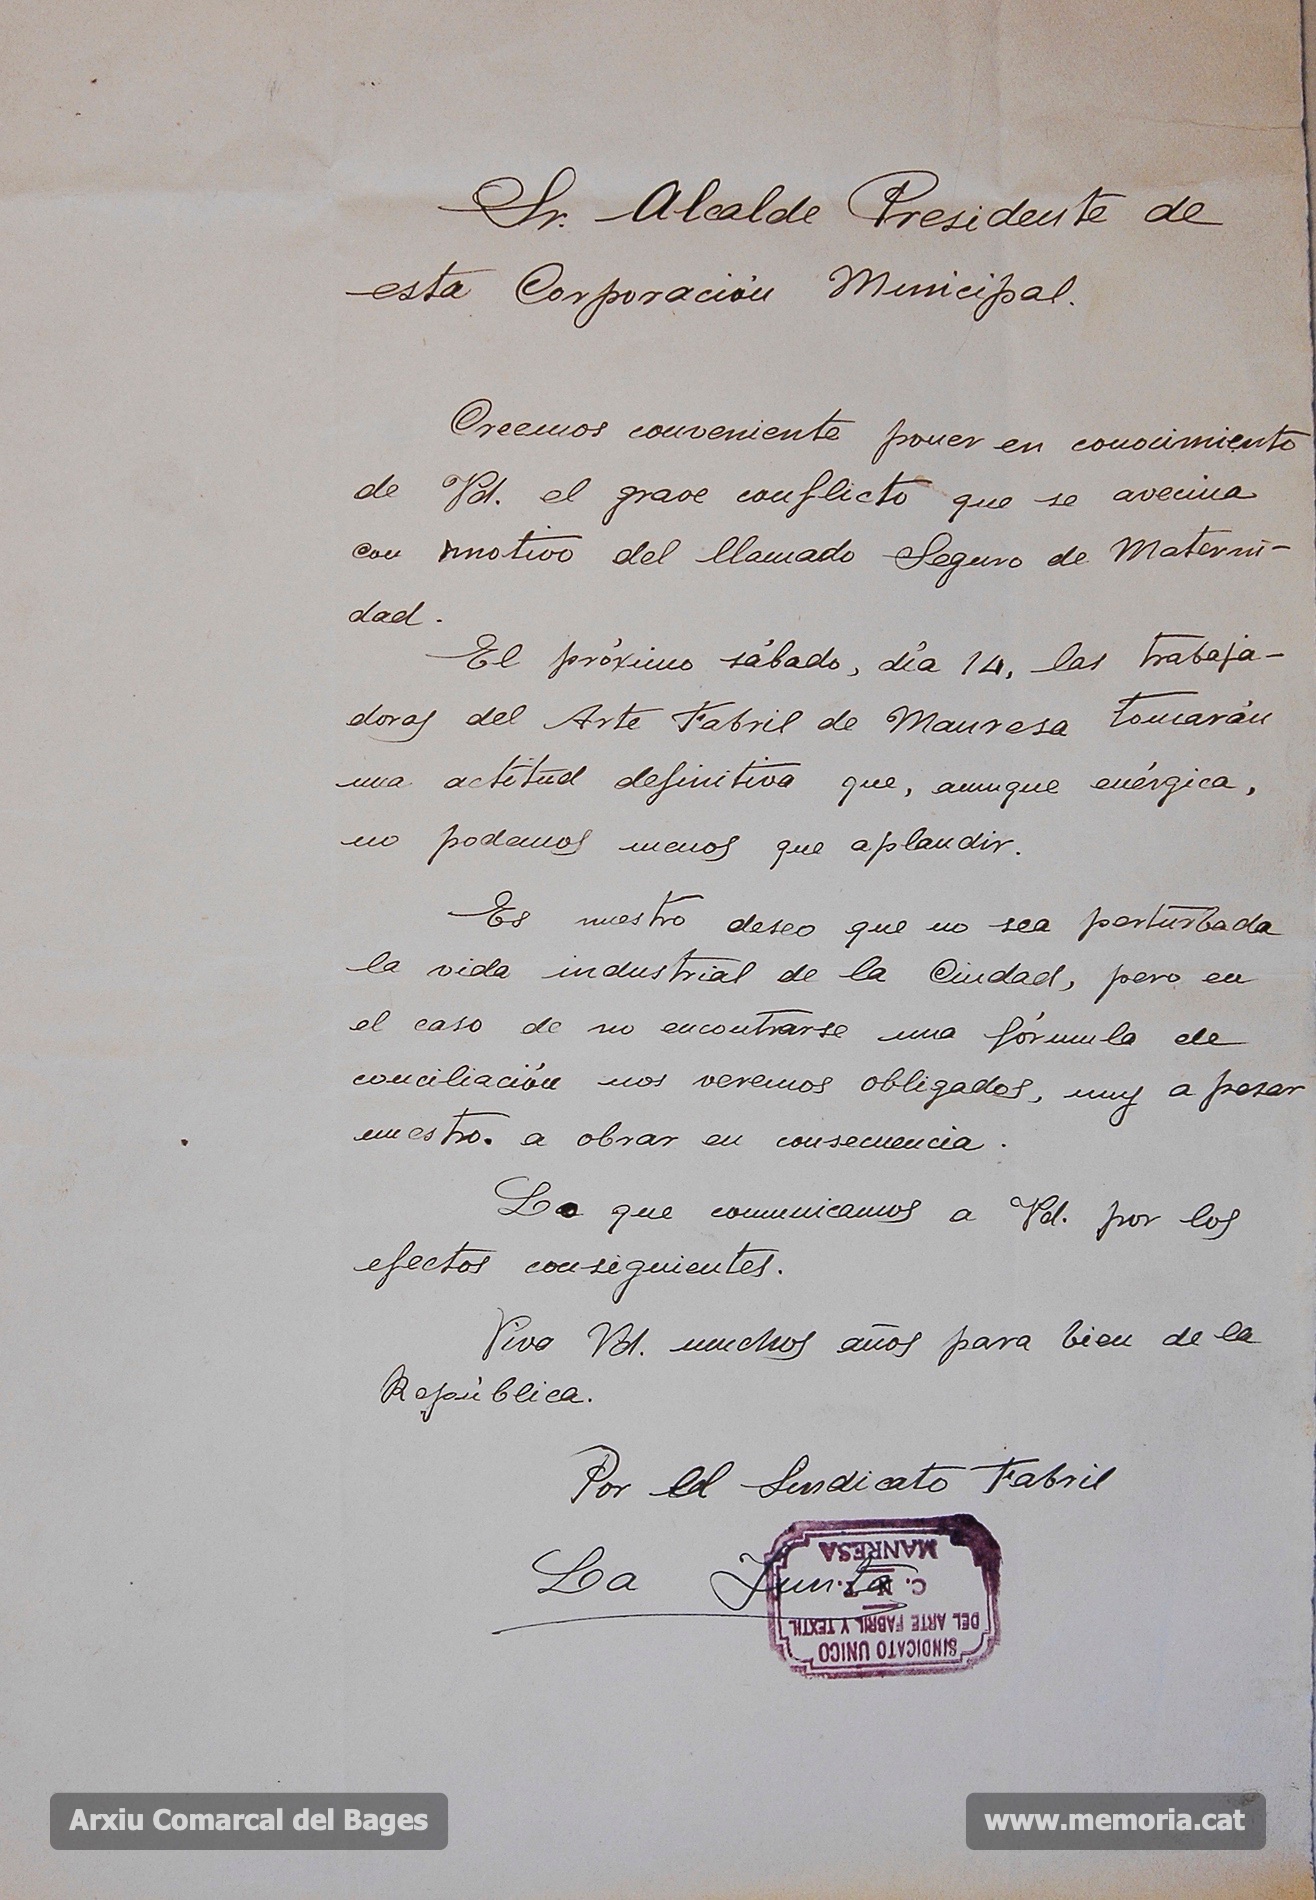 Sr. Alcalde Presidente de
esta Corporación Municipal.
Creemos conveniente poner en conocimiento
de Vd. el grave conflicto que se avecina
con motivo del llamado Seguro de Materni-
dad.
El próximo sábado, día 14, las trabaja-
doras del Arte Fabril de Manresa tomarán
una actitud definitiva que, aunque enérgica,
no podemos menos que aplaudir.
Es nuestro deseo que no sea perturbada
la vida industrial de la Ciudad, pero en
el caso de no encontrarse una fórmula de
conciliación nos veremos obligados, muy a pesar
nuestro. a obrar en consecuencia.
Lo que comunicamos a Vd. por los
efectos consiguientes.
Viva Vd. muchos años para bien de la
República.
Por el Sindicato Fabril
La Junta
SINDICATO UNICO
DEL ARTE FABRIL Y TEXTIL
C. N. T.
MANRESA
Arxiu Comarcal del Bages
www.memoria.cat